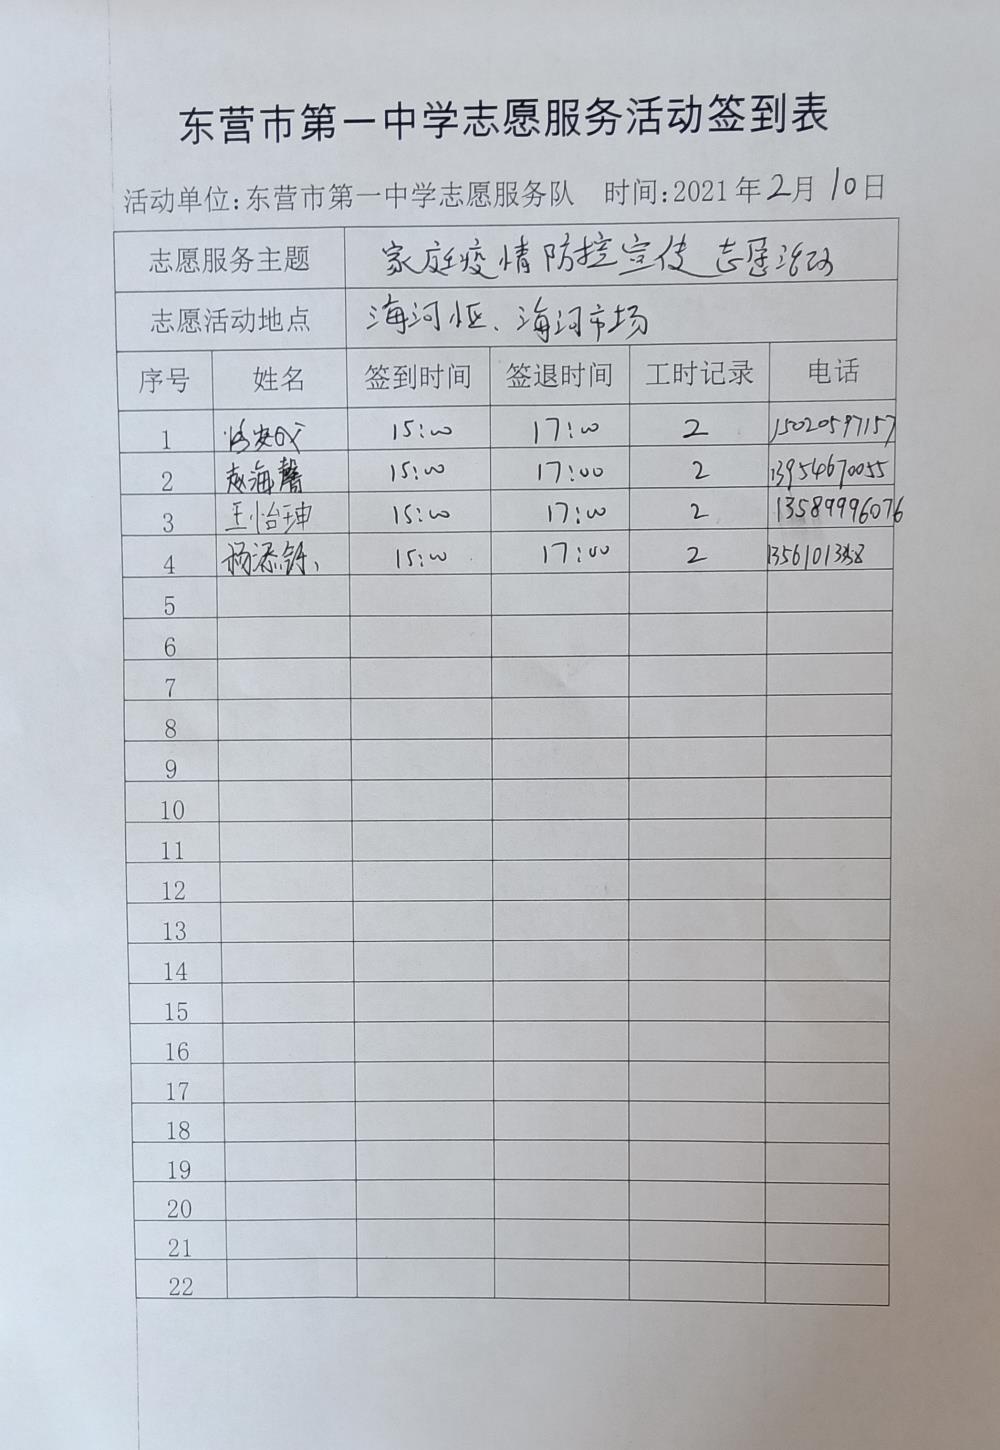 东营市第一中学志愿服务活动签到表
活动单位:东营市第一中学志愿服务队 时间:2021年2月10日
志愿服务主题 家庭疫情防控宣传志愿活动
志愿活动地点 海河、海河市场
序号 姓名 签到时间 签退时间 工时记录 电话
1 15:00 17:00 2 15020597157
2 赵海馨 15:00 17:00 2 13954670055
3 王怡珅 15:00 17:00 2 13589996076
4 杨添 15:00 17:00 2
5
6
7
8
9
10
11
12
13
14
15
16
17
18
19
20
21
22